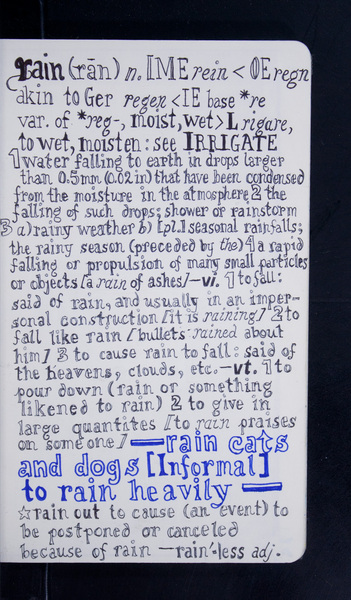 rain (rān) n. [ME rein < OE regn
akin to Ger regen < IE base *re
var. of *reg-, moist, wet > L rigare,
to wet, moisten: see IRRIGATE
1 water falling to earth in drops larger
than 0.5mm (0.02 in) that have been condensed
from the moisture in the atmosphere 2 the
falling of such drops; shower or rainstorm
3 a) rainy weather b) [pl.] seasonal rainfalls;
the rainy season (preceded by the) 4 a rapid
falling or propulsion of many small particles
or objects [a rain of ashes] —vi. 1 to fall:
said of rain, and usually in an imper-
sonal construction [it is raining] 2 to
fall like rain [bullets rained about
him] 3 to cause rain to fall: said of
the heavens, clouds, etc. —vt. 1 to
pour down (rain or something
likened to rain) 2 to give in
large quantites [to rain praises
on someone] —rain cats
and dogs [Informal]
to rain heavily —
☆rain out to cause (an event) to
be postponed or canceled
because of rain —rain'-less adj.